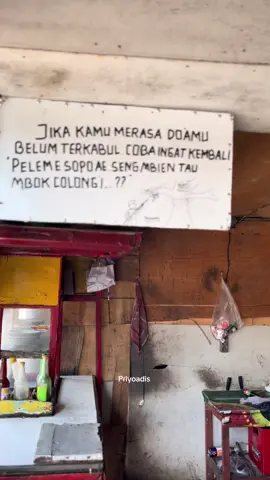 JIKA KAMU MERASA DO'AMU
BELUM TERKABUL COBA INGAT KEMBALI
"PELEM E SOPO AE SENG MBIEN TAU
MBOK COLONGI...??"
Priyoadis